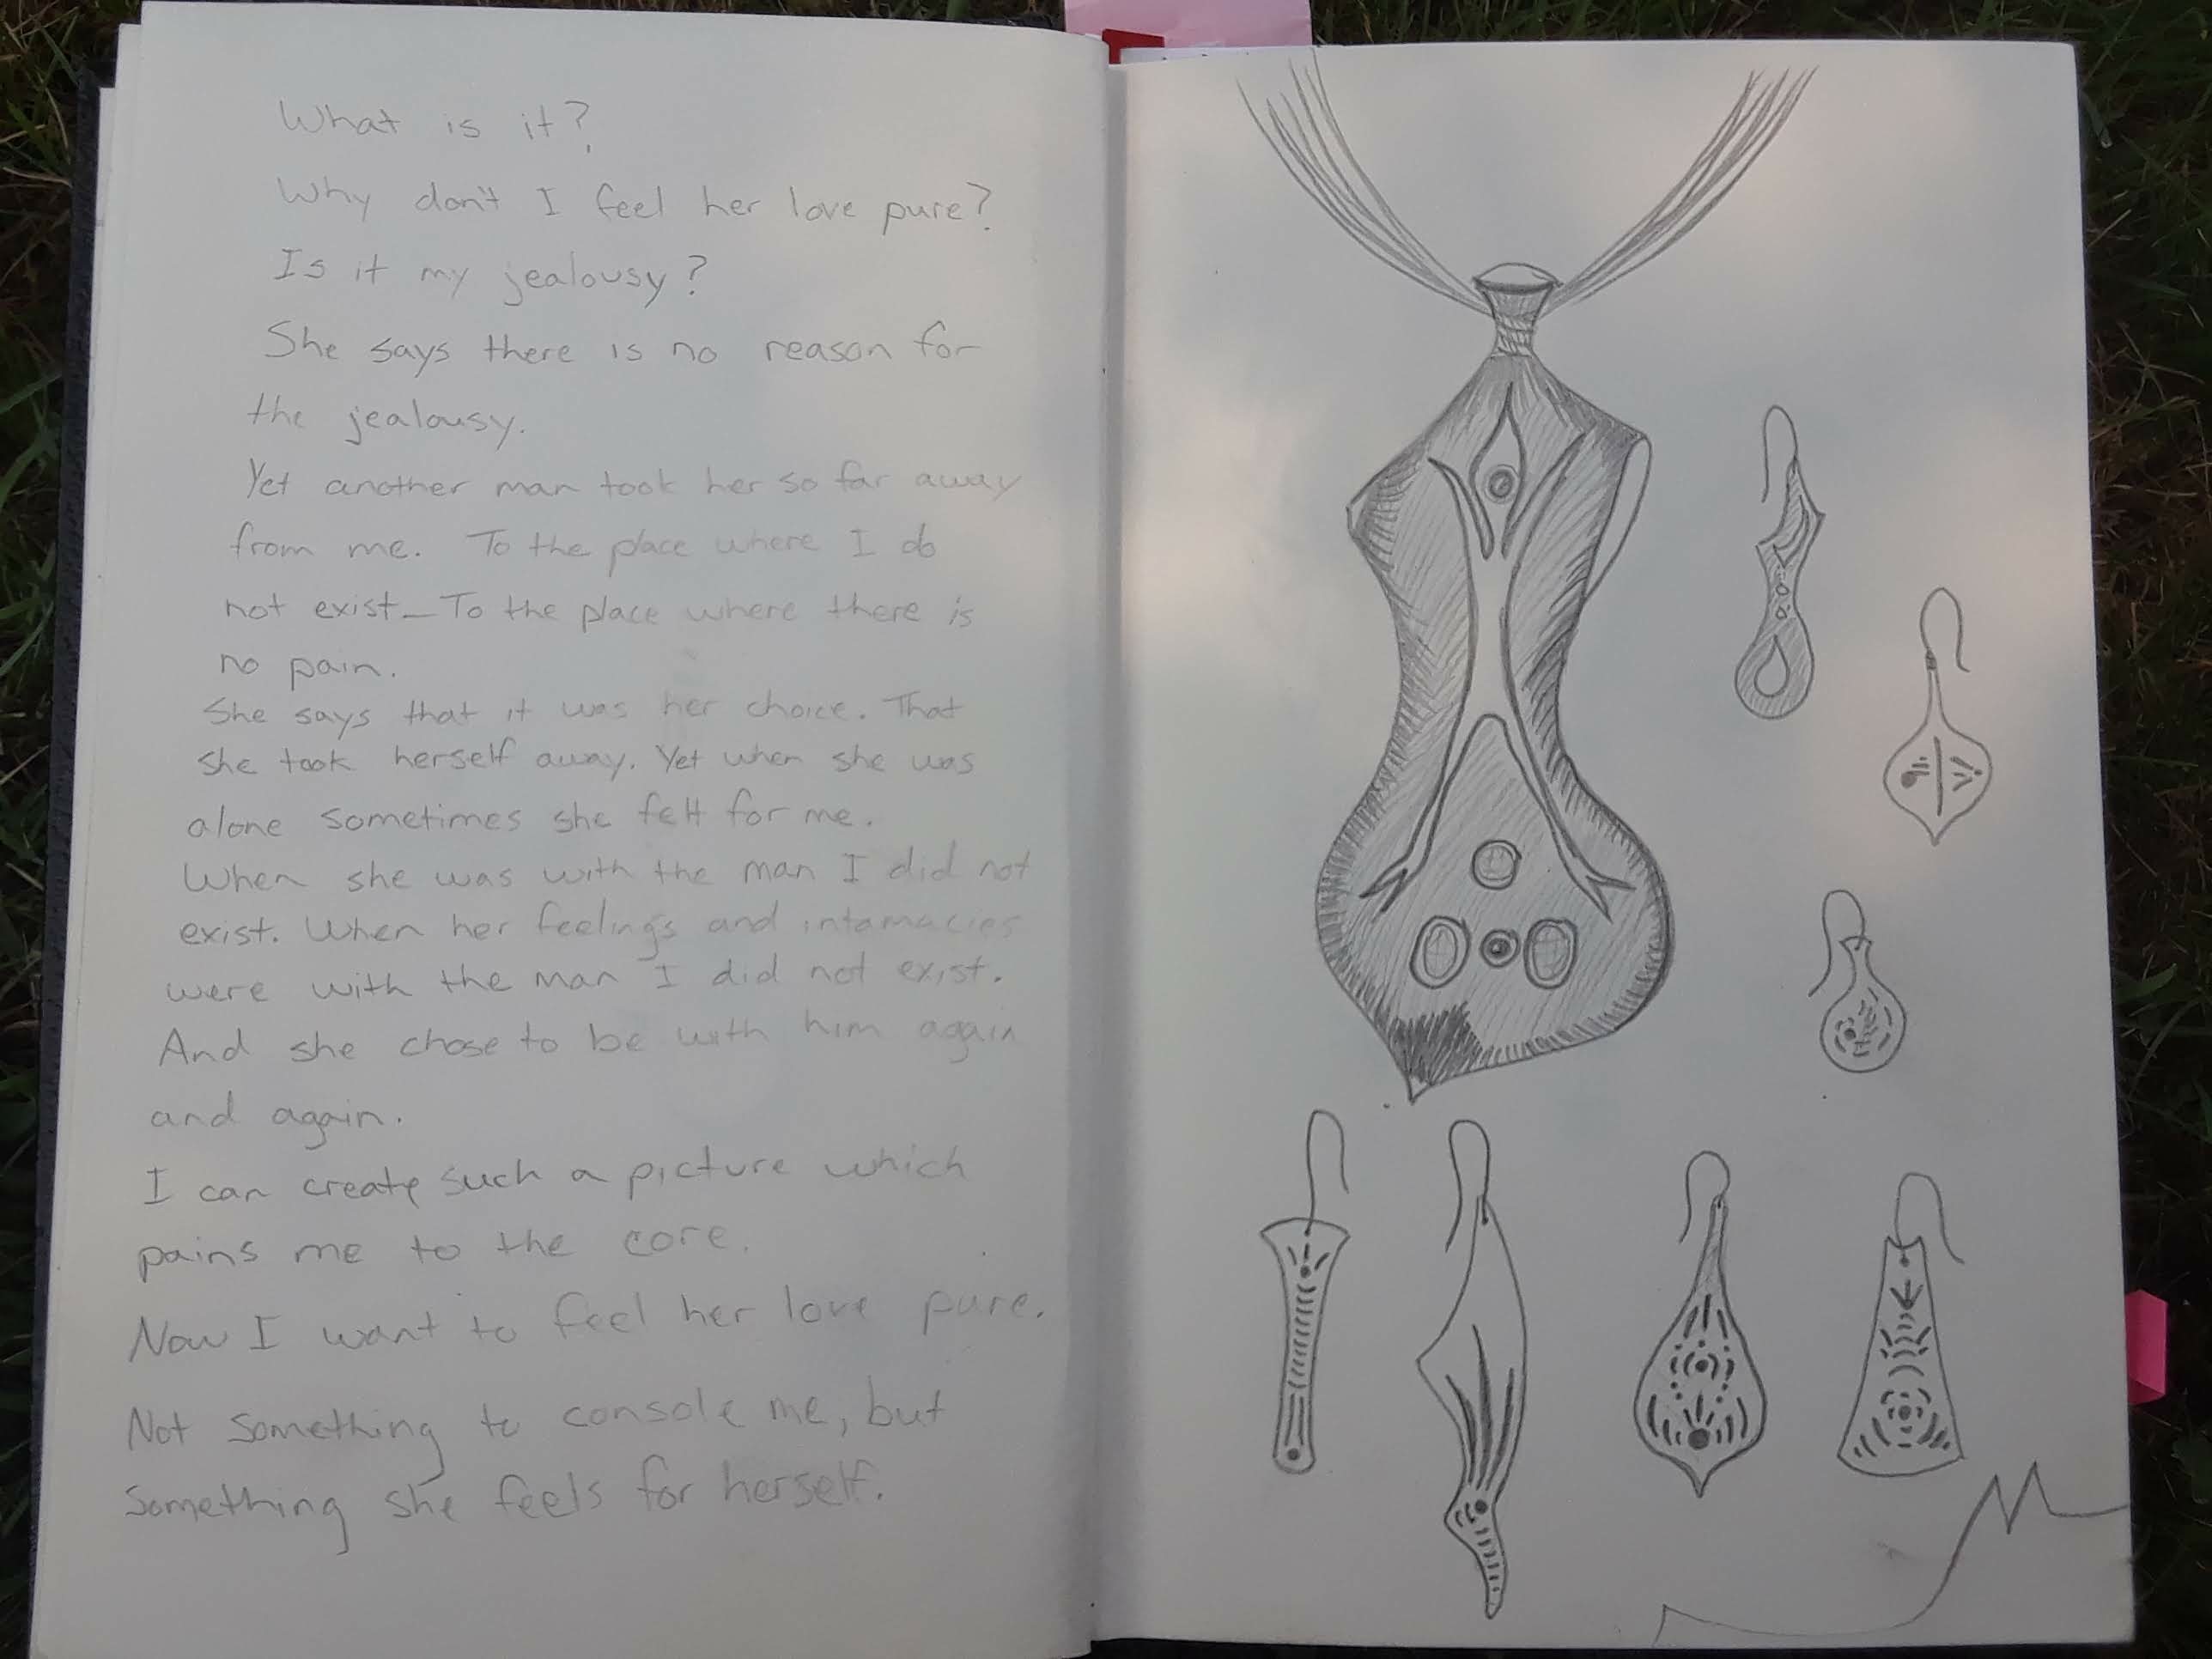 What is it?
Why don't I feel her love pure?
Is it my jealousy?
She says there is no reason for
the jealousy.
Yet another man took her so far away
from me. To the place where I do
not exist_To the place where there is
no pain.
She says that it was her choice. That
she took herself away. Yet when she was
alone sometimes she felt for me.
When she was with the man I did not
exist. When her feelings and intamacies
were with the man I did not exist.
And she chose to be with him again
and again.
I can create such a picture which
pains me to the core.
Now I want to feel her love pure.
Not something to console me, but
something she feels for herself.